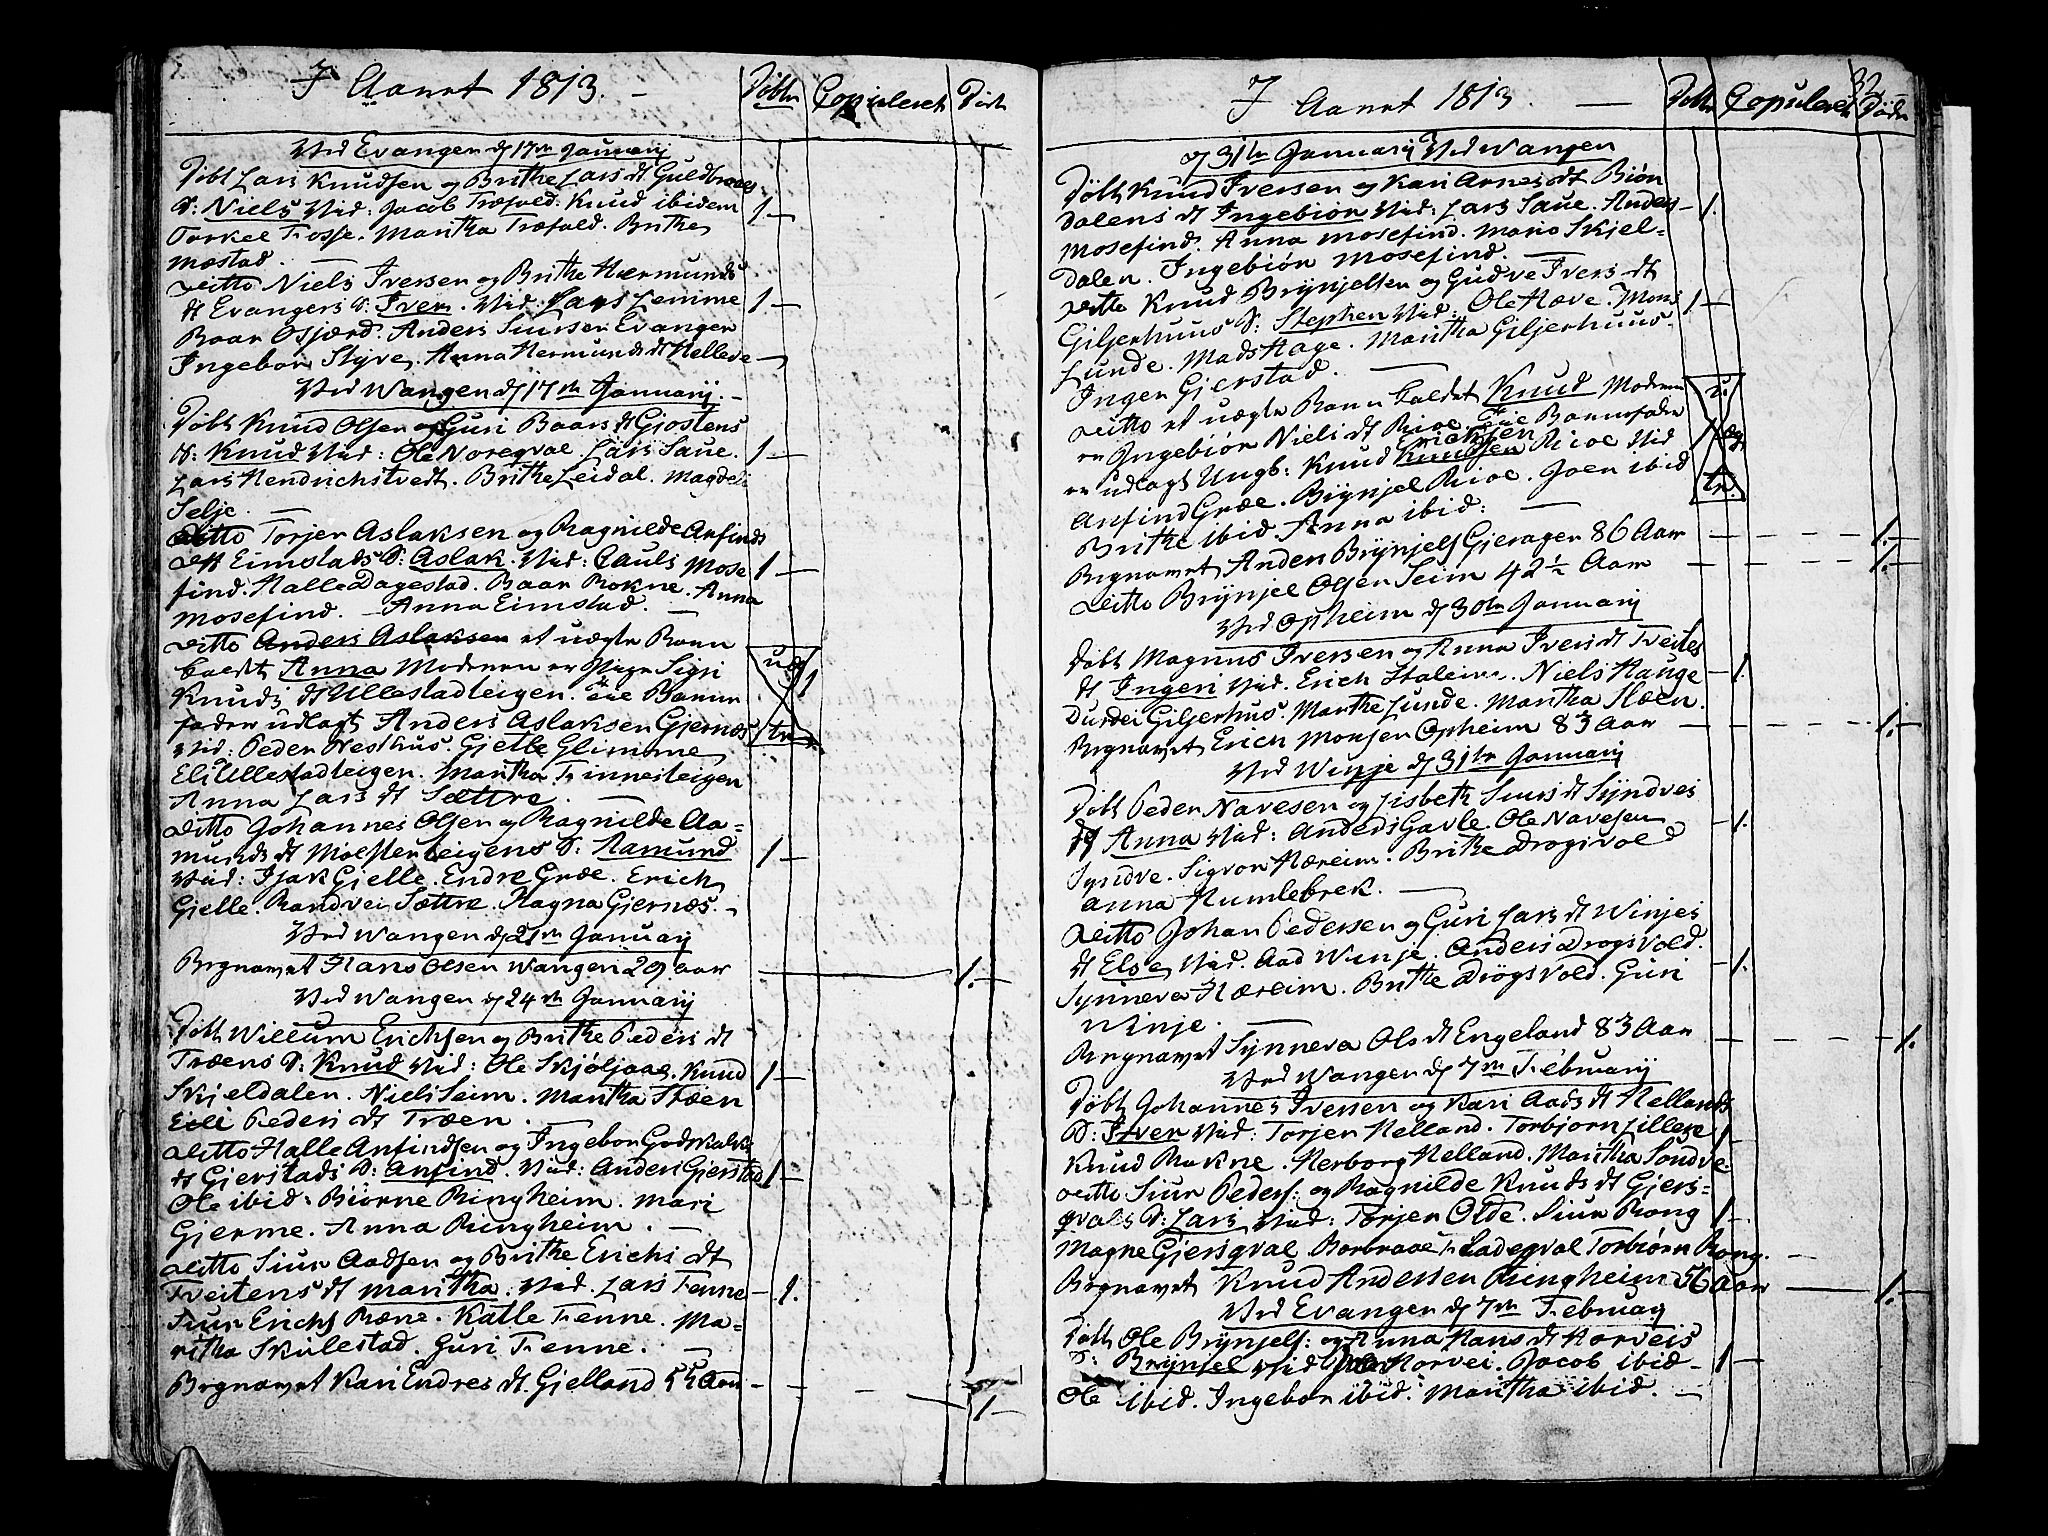 I Aaret 1813. Döbte Copuleret Död
Ved Evanger d 17de Januarij
Döbt Lars Knudsen og Brithe Lars dt Guldbraaes
S: Niels Vid: Jacob Træfald. Knud ibidem 1
Torkel Fosse. Maritha Træfald. Brithe
Mæstad.
Ditto Niels Iversen og Brithe Hermunds
dt Evangers S: Iver. Vid: Lars Lemme 1
Baar Osjærd. Anders Siursen Evanger
Ingebor Styve. Anna Hermunds dt Hellese
Ved Wangen d 17de Januarij.
Döbt Knud Olsen og Guri Baars dt Gjostens
S. Knud Vid: Ole Noreqval Lars Saue. 1
Lars Hendrichstvedt. Brithe Leidal. Magdeli
Selje.
Ditto Torjer Aslaksen og Ragnilde Anfinds
dt Eimstads S: Aslak. Vid: Pauls Mose 1
find. Halle Dagestad. Baar Rokne. Anna
Mosefind. Anna Eimstad.
Ditto Anders Aslaksen et uægte Barn
kaldt Anna Moderen er Pige Sigri 1
Knuds dt Ullestadleigen. til Barne
fader udlagt Anders Aslaksen Gjernes
Vid: Peder Nesthus. Gjelle Glimme
Eli Ullestadleigen. Maritha Finnesleigen
Anna Lars dt Sættre.
Ditto Johannes Olsen og Ragnilde Aa=
munds dt Molsterleigens S: Aamund 1
Vid: Isak Gjelle. Endre Græe. Erich
Gjelle. Randvei Sættre. Ragna Gjernæs.
Ved Wangen d 21de Januarij
Begravet Hans Olsen Wangen 29 aar 1.
Ved Wangen d 24de Januarij
Döbt Willum Erichsen og Brithe Peders dt
Træens S: Knud Vid: Ole Skjöljaae. Knud 1
Skieldalen. Niels Seim. Maritha Stöen
Eili Peders dt Træen.
Ditto Halle Anfindsen og Ingebor Godskalks
dt Gjerstads S: Anfind. Vid: Anders Gjerstad 1
Ole ibid: Biörne Ringheim. Mari
Gjerme. Anna Ringheim.
Ditto Siur Aadsen og Brithe Erichs dt
Tveitens dt Maritha. Vid. Lars Fenne 1.
Siur Erichs Rene. Katle Fenne. Ma=
ritha Skulestad. Guri Fenne.
Begravet Kari Endres dt Gjelland 55 Aar 1
32
I Aaret 1813. Döbte Copuleret Döde
d 31te Januarij Ved Wangen
Döbt Knud Iversen og Kari Arnes dt Biön
dalens dt Ingebiör Vid: Lars Saue. Anders 1.
Mosefind. Anna Mosefind. Mario Skjel=
dalen. Ingebiör Mosefind.
Ditto Knud Brÿnjelsen og Gudve Ivers dt
Giljerhuus S: Stephen Vid: Ole Hæve. Mons 1
Lunde. Mads Hage. Maritha Giljerhuus.
Inger Gjerstad.
Ditto et uægte Barn kaldet Knud Moderen
er Ingebiör Niels dt Rioe. til Barnefader 1
er udlagt Ungk: Knud Erichsen Rioe Vid
Anfind Græe. Brÿnjel Rioe. Joen ibid
Brithe ibid. Anna ibid:
Begravet Anders Brÿnjels Gjerager 86 Aar 1.
Ditto Brÿnjel Olsen Seim 42½ Aar 1.
Ved Opheim d 30te Januarij
Döbt Magnus Iversen og Anna Ivers dt Tveites
dt Ingeri Vid. Erich Staleim. Niels Hauge 1.
Durdei Giljerhus. Marthe Lunde. Maritha Hæen.
Begravet Erich Monsen Opheim 83 Aar 1.
Ved Winje d 31te Januarij
Döbt Peder Navesen og Lisbeth Siurs dt Sÿndves
dt Anna Vid: Anders Gavle. Ole Navesen 1.
Syndve. Sigvor Hæreim. Brithe Drogsvold
Anna Humlebrek.
Ditto Johan Pedersen og Guri Lars dt Winjes
dt Else Vid. Aad Winje. Anders Drogsvold. 1.
Sÿnneva Hæreim. Brithe Drögsvold. Guri
Winje.
Begravet Sÿnneva Ols dt Engeland 83 Aar 1.
Ved Wangen d 7de Februarij
Döbt Johannes Iversen og Kari Aads dt Hellands
S: Iver Vid: Torjer Helland. Torbjorn Lillese 1
Knud Rokne. Herborg Helland. Maritha Sondve.
Ditto Siur Peders: og Ragnilde Knuds dt Gjers=
qvals S: Lars Vid: Torjer Olde. Siur Rong 1
Magne Gjersqval Borbraae Ladeqval Torbiörn Rong.
Begravet Knud Andersen Ringheim 56 Aar 1.
Ved Evanger d 7de Februarij
Döbt Ole Brÿnjels: og Anna Hans dt Horveis
S: Brÿnjel Vid Horvei. Jacob ibid 1
Ole ibid. Ingebor ibid. Maritha ibid.